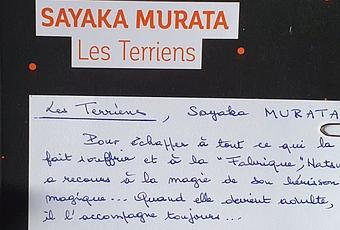 SAYAKA MURATA
Les Terriens
Les Terriens, Sayaka MURATA
Pour échapper à tout ce qui la
fait souffrir et à la "Fabrique", Natsu
a recours à la magie de son hérisson
magique... Quand elle devient adulte,
il l'accompagne toujours...